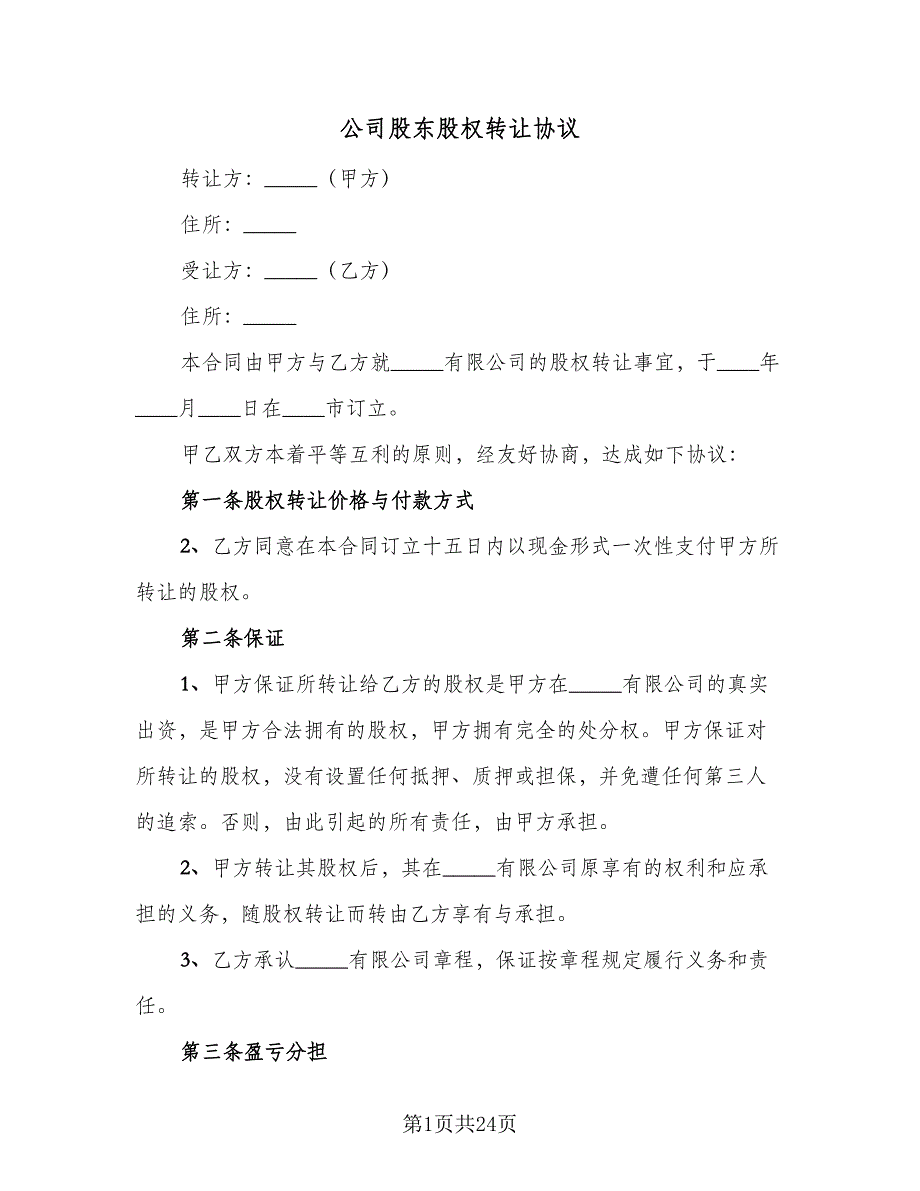 公司股东股权转让协议
转让方：_____（甲方）
住所：_____
受让方：_____（乙方）
住所：_____
本合同由甲方与乙方就_____有限公司的股权转让事宜，于____年
____月____日在____市订立。
甲乙双方本着平等互利的原则，经友好协商，达成如下协议：
第一条股权转让价格与付款方式
2、乙方同意在本合同订立十五日内以现金形式一次性支付甲方所
转让的股权。
第二条保证
1、甲方保证所转让给乙方的股权是甲方在_____有限公司的真实
出资，是甲方合法拥有的股权，甲方拥有完全的处分权。甲方保证对
所转让的股权，没有设置任何抵押、质押或担保，并免遭任何第三人
的追索。否则，由此引起的所有责任，由甲方承担。
2、甲方转让其股权后，其在_____有限公司原享有的权利和应承
担的义务，随股权转让而转由乙方享有与承担。
3、乙方承认_____有限公司章程，保证按章程规定履行义务和责
任。
第三条盈亏分担
第1页共24页